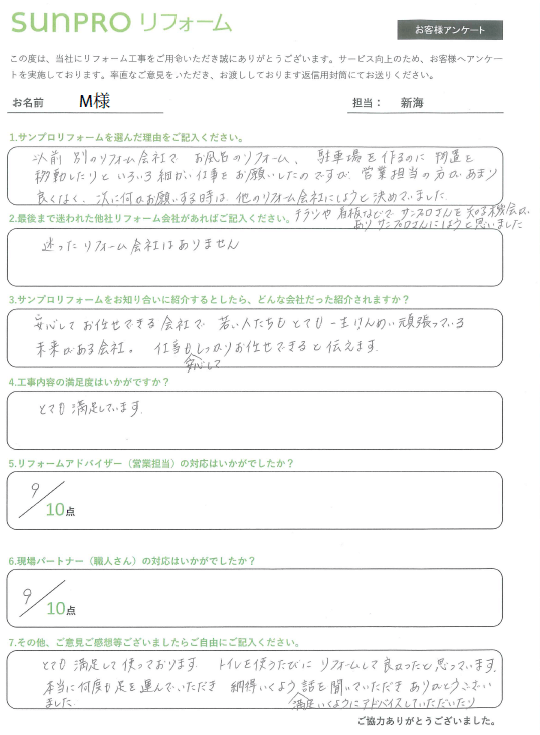 SUNPRO リフォーム
お客様アンケート
この度は、当社にリフォーム工事をご用命いただき誠にありがとうございます。サービス向上のため、お客様へアンケー
トを実施しております。率直なご意見をいただき、お渡ししております返信用封筒にてお送りください。
お名前 M様 担当： 新海
1.サンプロリフォームを選んだ理由をご記入ください。
以前 別のリフォーム会社で お風呂のリフォーム、 駐車場を作るのに 物置を
移動したりといろいろ細かい仕事をお願いしたのですが 営業担当の方があまり
良くなく、次に何かお願いする時は 他のリフォーム会社にしようと決めていました
チラシや 看板などで サンプロさんを知る機会が
あり サンプロさんにしようと思いました
2.最後まで迷われた他社リフォーム会社があればご記入ください。
迷ったリフォーム会社はありません
3.サンプロリフォームをお知り合いに紹介するとしたら、どんな会社だった紹介されますか？
安心して お任せできる 会社で 若い人たちもとても一生けんめい頑張っている
未来がある会社。 仕事もしっかりお任せできると伝えます。
安心して
4.工事内容の満足度はいかがですか？
とても満足しています。
5.リフォームアドバイザー（営業担当）の対応はいかがでしたか？
9
10点
6.現場パートナー（職人さん）の対応はいかがでしたか？
9
10点
7.その他、ご意見ご感想等ございましたらご自由にご記入ください。
とても 満足して使っております。 トイレを使うたびに リフォームして良かったと思っています。
本当に何度も足を運んでいただき 納得いくよう 話を聞いていただき ありがとうござい
ました。 満足いくようにアドバイスしていただいたり
ご協力ありがとうございました。